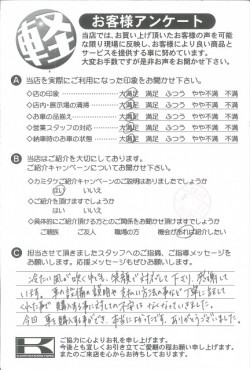 軽
お客様アンケート
当店では、お買い上げ頂いたお客様の声を可能
な限り現場に反映し、お客様により良い商品と
サービスを提供する事に努めています。
大変お手数ですが是非お声をお聞かせ下さい。
A 当店を実際にご利用になった印象をお聞かせ下さい。
◇店の印象 大満足 満足 ふつう やや不満 不満
◇店内・展示場の清掃 大満足 満足 ふつう やや不満 不満
◇お車の品揃え 大満足 満足 ふつう やや不満 不満
◇営業スタッフの対応 大満足 満足 ふつう やや不満 不満
◇納車時のお車の状態 大満足 満足 ふつう やや不満 不満
B 当店はご紹介を大切にしております。
ご紹介キャンペーンについてお聞かせ下さい。
◇カミタケご紹介キャンペーンのご説明はありましたでしょうか
はい いいえ
◇ご紹介を頂けますでしょうか
はい いいえ
◇具体的にご紹介頂ける方とのご関係をお聞かせ頂けますでしょうか
ご親族 ご友人 職場の方 機会があれば紹介したい
C 担当させて頂きましたスタッフへのご指摘、ご指導メッセージを
お願いします。応援メッセージもぜひお願いします。
冷たい風が吹く中でも、笑顔で対応して下さり、感謝して
います。車の設備の説明や支払い方法の事など丁寧に話して
くれた事で購入する事に対しての不安はなくなっていきました。
今回、車を購入する事ができ、本当によかったです。ありがとうございました。
ご協力に心よりお礼を申し上げます。
今後とも宜しくお引き立てご愛顧の程お願い申し上げます。
またのご来店を心からお待ちしております。